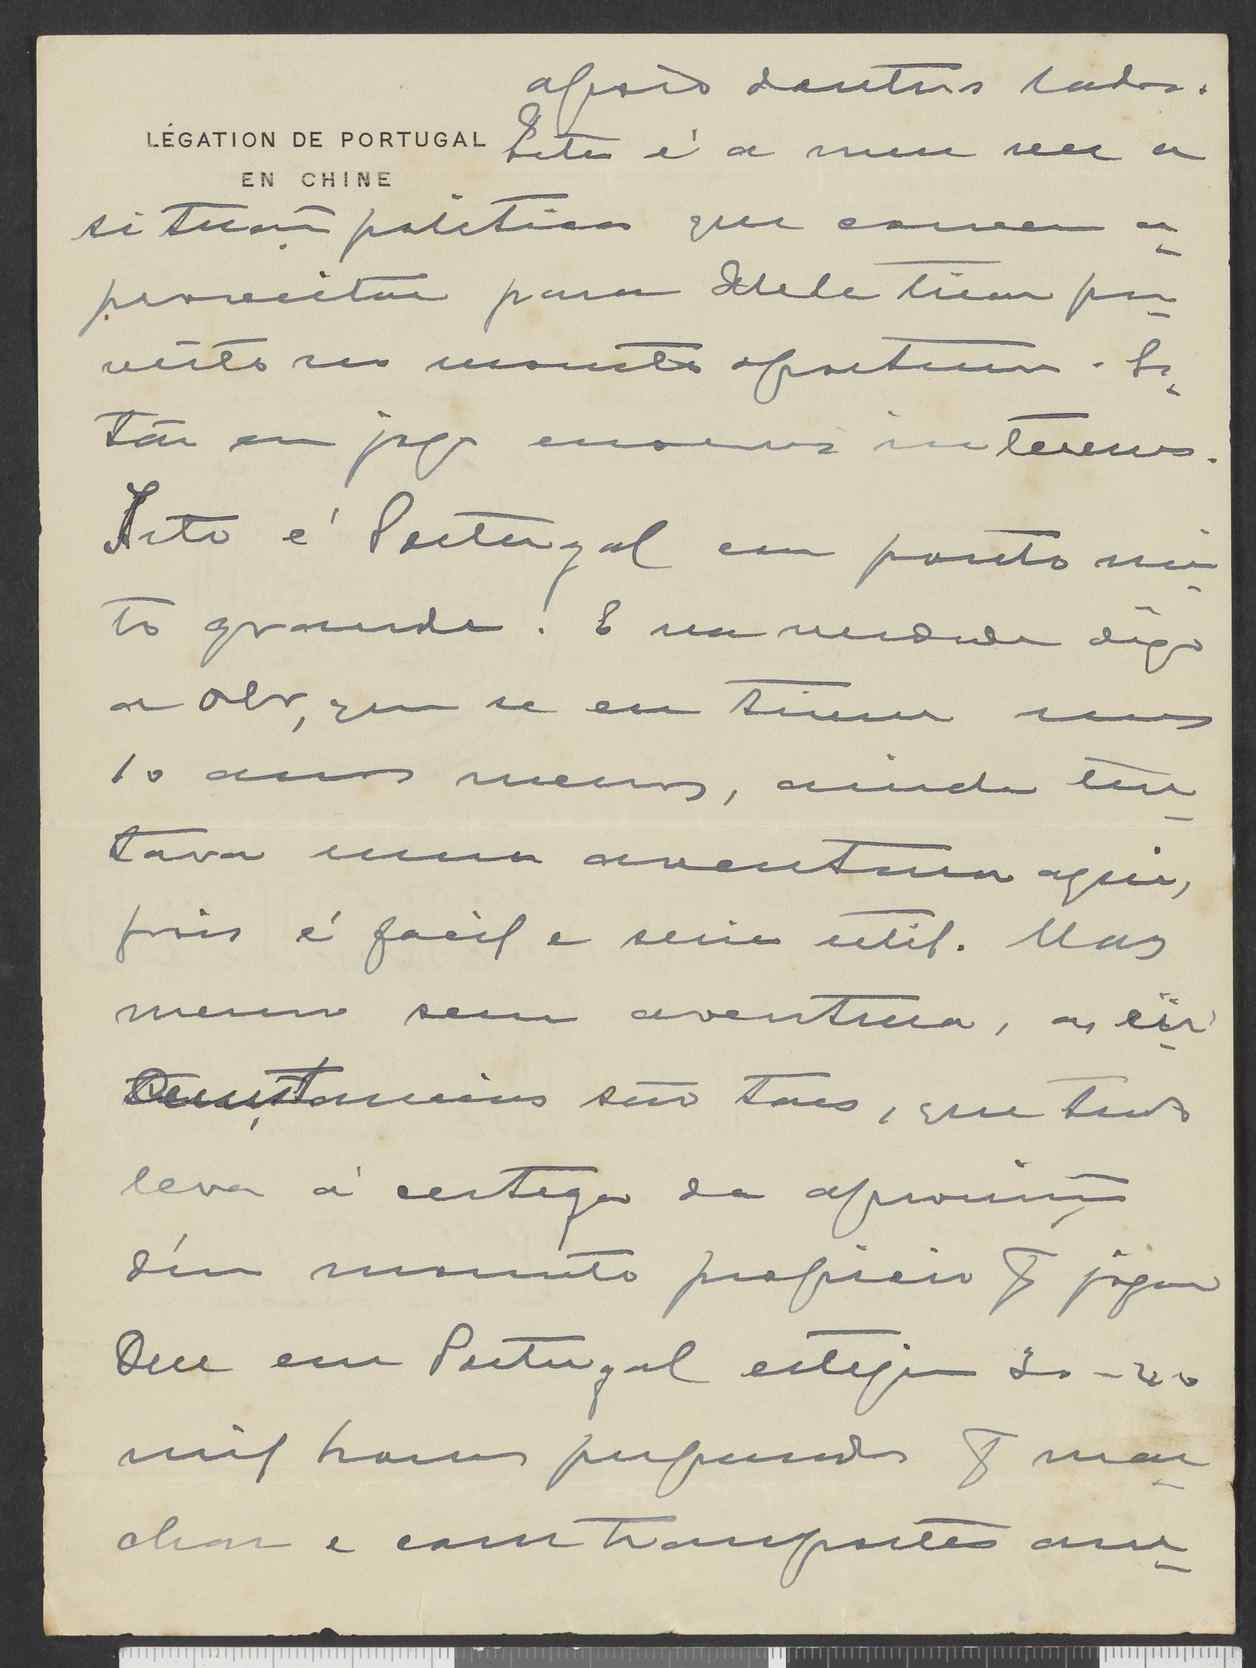 apoio doutros lados.
LÉGATION DE PORTUGAL
EN CHINE
Esta é a meu ver a
situação politica que convem a-
proveitar para dela tirar pro-
veito no momento oportuno. Es-
tão em jogo enormes interesses.
Isto é Portugal em ponto mui-
to grande! E na verdade digo
a que se eu tivesse uns
10 anos menos, ainda ten-
tava uma aventura aqui,
pois é facil e seria util. Mas
mesmo sem aventura, as cir-
cunstancias são taes, que tudo
leva á certeza da aproximação
dúm momento propicio jogar
Que em Portugal estejam 30-40
mil homens preparados mar-
char e com transportes